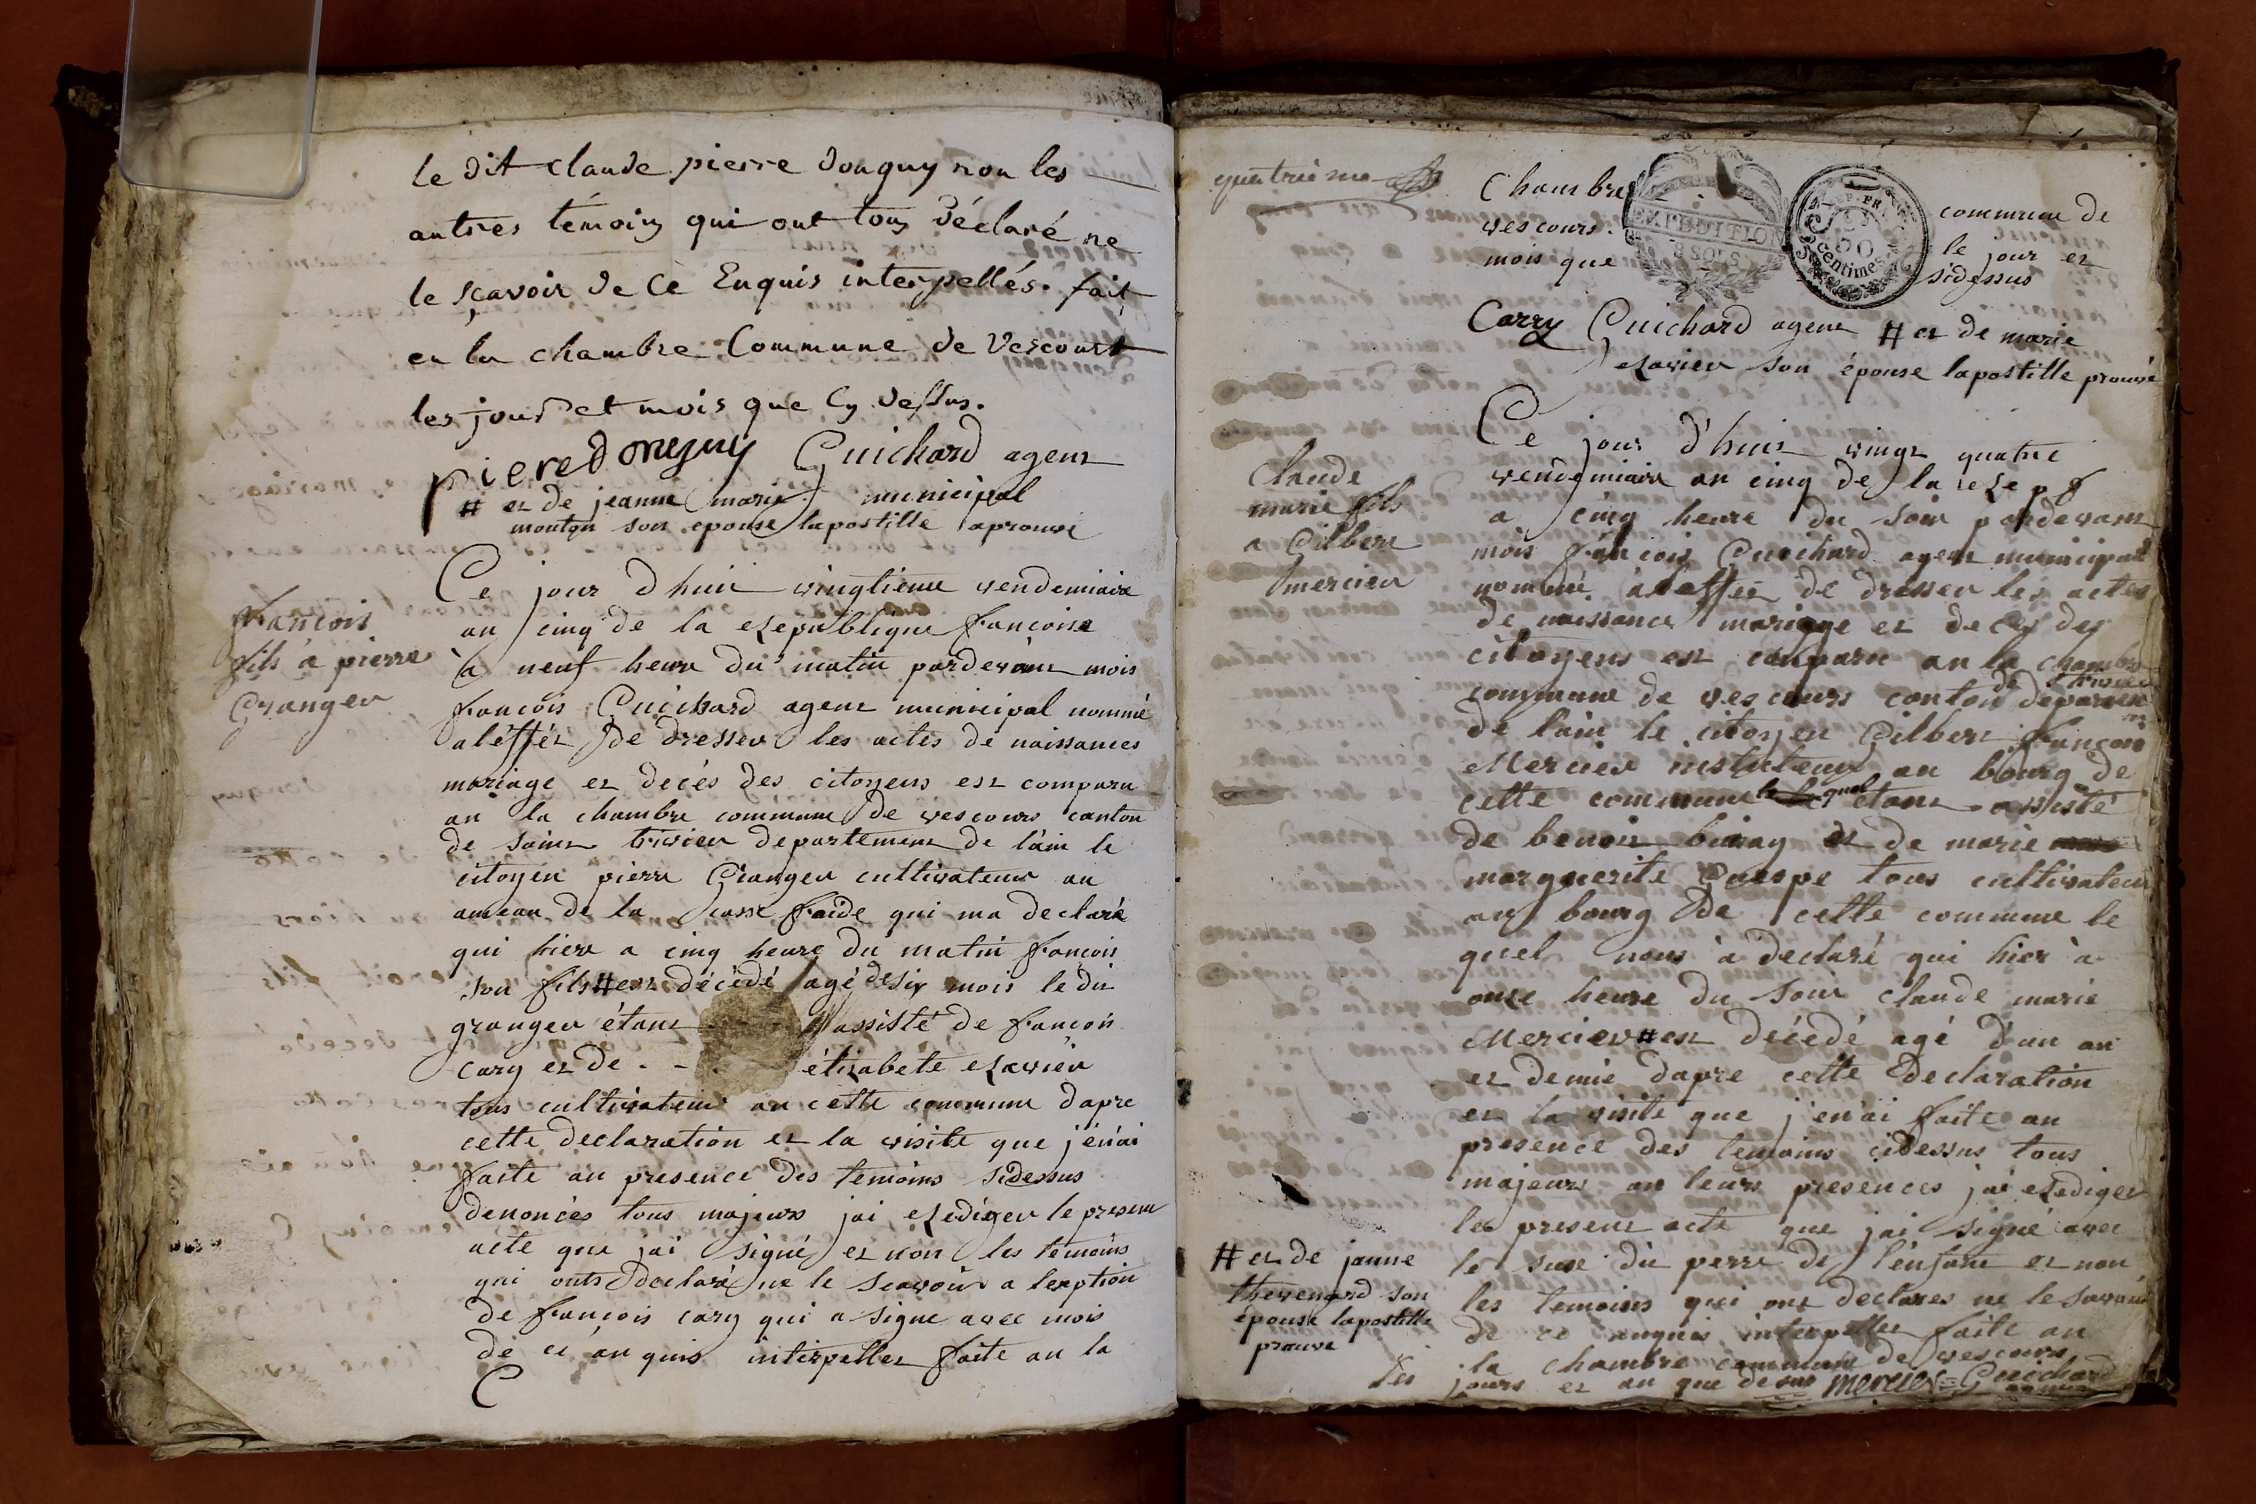 le dit claude pierre donguy non les
autres témoins qui ont tous déclaré ne
le sçavoir de ce Enquis interpellés. fait
en la chambre Commune de Vescourt
les jour et mois que Cy dessus.
piere donguy Guichard agent
# et de jeanne marie municipal
mouton son epouse lapostille aprouvé
francois
fils a pierre
Granger
Ce jour dhuit vingtieme vendemiaire
an cinq de la Republique francoise
a neuf heure du matin pardevant mois
francois Guichard agent municipal nommé
aléffét de dresser les actes de naissances
mariage et décés des citoyens est comparu
an la chambre commune de vescours canton
de saint trivier departement de l'ain le
citoyen pierre Granger cultivateur au
ameau de la casse froide qui ma declaré
qui hier a cinq heure du matin francois
son fils # est décédé agé de six mois le dit
granger étant assisté de francois
cary et de . - . élizabete Ravier
tous cultivateur an cette commune dapre
cette declaration et la visite que j'én'ai
faite an presence des temoins sidessus
denoncés tous majeurs jai Rediger le present
acte que jai signé et non les temoins
qui onts declaré ne le scavoir a lexption
de francois cary qui a signe avec mois
de ce an quis interpeller faite an la
C
quatrieme
Chambre
vescours.
mois que
EXPEDITION
8 SOLS
REP. FRA.
50
Centimes
commune de
le jour et
sidessus
Carry Guichard agent # et de marie
Ravier son épouse lapostille prouvé
Claude
marie fils
a Gilbert
mercier
Ce jour d'huit vingt quatre
vendemiaire an cinq de la Re p f
a cinq heure du soir pardevant
mois francois Guichard agent municipal
nommé aleffet de dresser les actes
de naissance mariage et deces des
citoyens est comparu an la chambre
commune de vescours canton de s trivier departem
de l'ain le citoyen Gilbert francois
Mercier instituteur au bourg de
cette commune le quel étant assisté
de benoit buiray et de marie
marguerite Guespe tous cultivateur
au bourg de cette commune le
quel nous à declaré qui hier à
onze heure du soir claude marie
Mercier # est décédé agé d'un an
et demie dapre cette declaration
et la visite que j'en'ai faite an
presence des temoins cidessus tous
majeurs an leurs presences jai Rediger
le present acte que jai signé avec
le perre de l'enfant et non
les temoins qui ont declares ne le savoir
de ce anquis interpeller faite an
la chambre commune de vescours
les jours et an que desus mercier Guichard
# et de janne
thevenard son
épouse lapostille
prouve